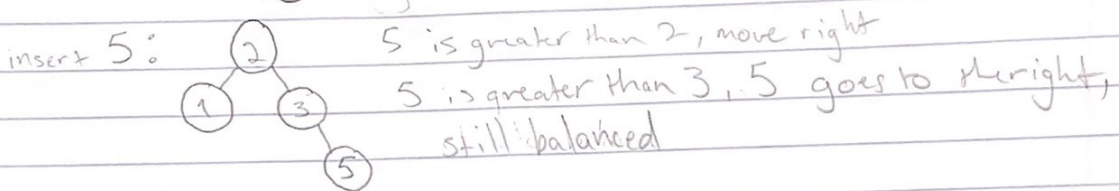 insert 5:
2
5 is greater than 2, move right
1
3
5 is greater than 3, 5 goes to the right,
still balanced
5